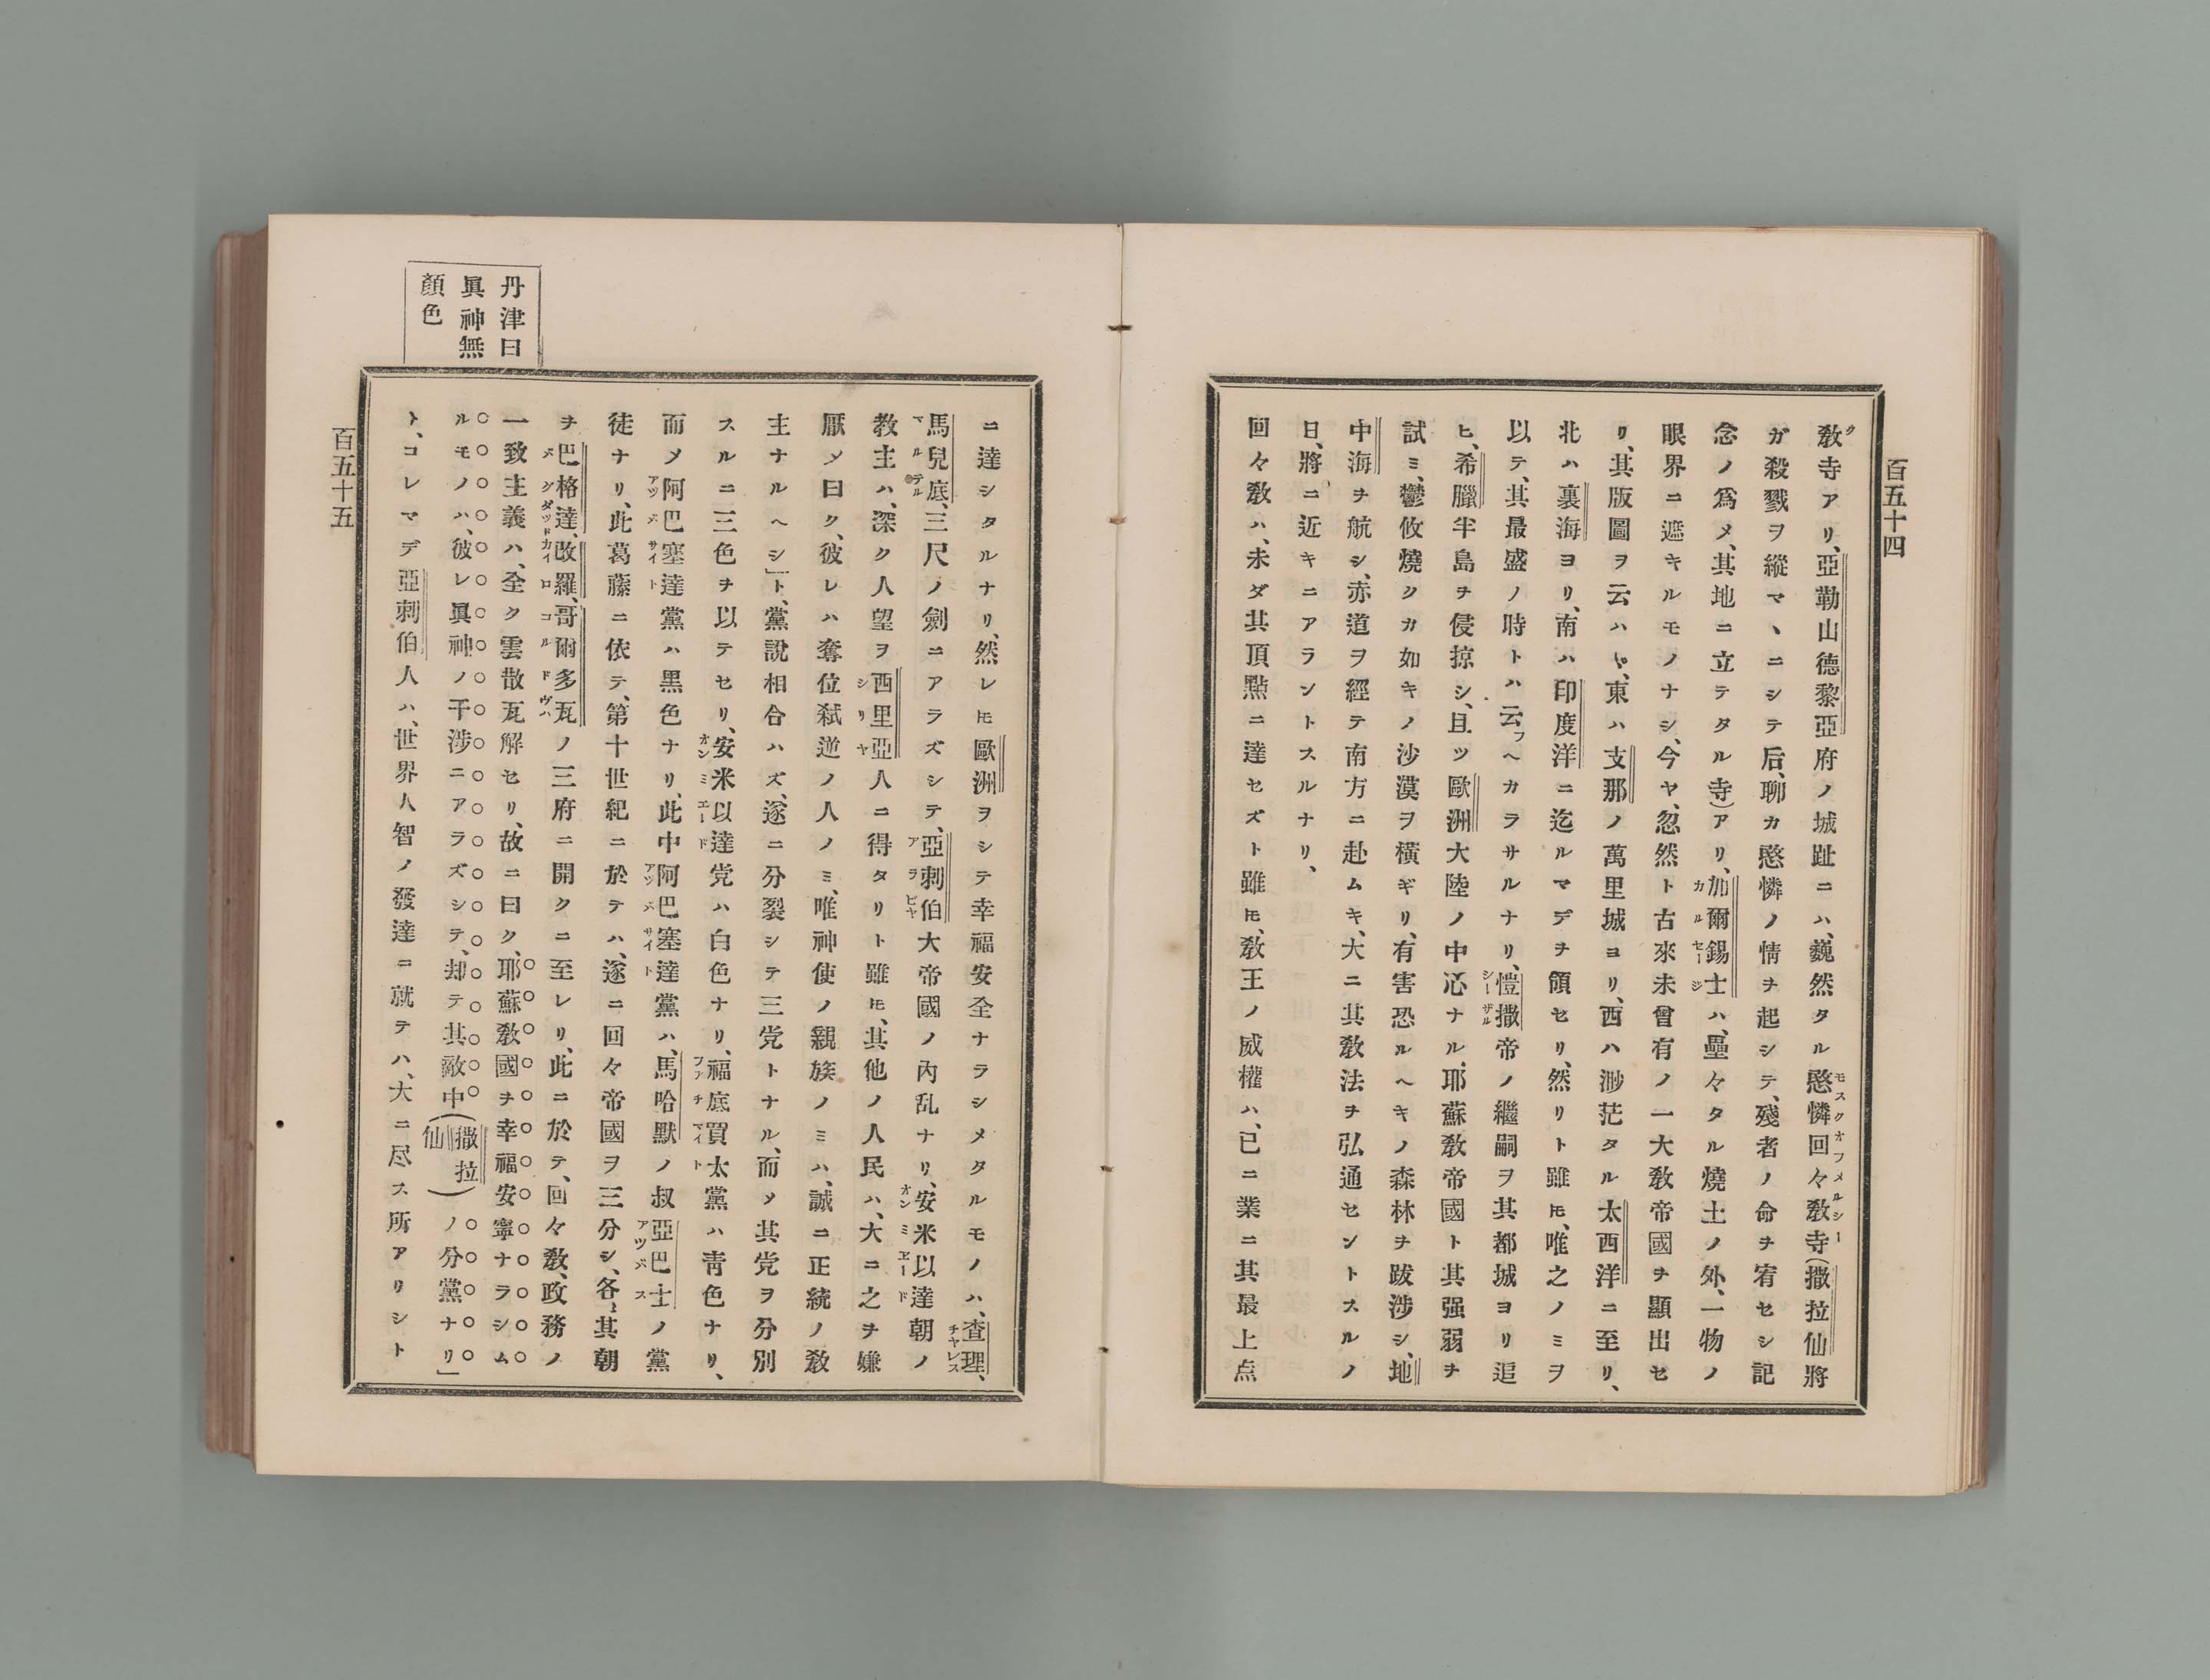 百五十四
敎寺アリ、亞勒山德黎亞府ノ城趾ニハ、巍然タル愍憐回々敎寺(撒拉仙將
ガ殺戮ヲ縱マヽニシテ后、聊カ愍憐ノ情ヲ起シテ、殘者ノ命ヲ宥セシ記
念ノ爲メ、其地ニ立テタル寺)アリ、加爾錫士ハ、壘々タル燒土ノ外、一物ノ
眼界ニ遮キルモノナシ、今ヤ、忽然ト古來未曾有ノ一大敎帝國ヲ顯出セ
リ、其版圖ヲ云ハヾ、東ハ支那ノ萬里城ヨリ、西ハ渺茫タル太西洋ニ至リ、
北ハ裏海ヨリ、南ハ印度洋ニ迄ルマデヲ領セリ、然リト雖ㇳモ、唯之ノミヲ
以テ、其最盛ノ時トハ云フヘカラサルナリ、愷撒帝ノ繼嗣ヲ其都城ヨリ追
ヒ、希臘半島ヲ侵掠シ、且ツ歐洲大陸ノ中心ナル、耶蘇敎帝國ト其强弱ヲ
試ミ、鬱攸燒クカ如キノ沙漠ヲ橫ギリ、有害恐ルヘキノ森林ヲ跋涉シ、地
中海ヲ航シ、赤道ヲ經テ南方ニ赴ムキ、大ニ其敎法ヲ弘通セントスルノ
日、將ニ近キニアラントスルナリ、
回々敎ハ、未ダ其頂點ニ達セズト雖ㇳモ、敎王ノ威權ハ、已ニ業ニ其最上点
丹津曰
眞神無
顏色
ニ達シタルナリ、然レㇳモ歐洲ヲシテ幸福安全ナラシメタルモノハ、査理、
馬兒底、三尺ノ劍ニアラズシテ、亞刺伯大帝國ノ內乱ナリ、安米以達朝ノ
敎主ハ、深ク人望ヲ西里亞人ニ得タリト雖ㇳモ、其他ノ人民ハ、大ニ之ヲ嫌
厭メ曰ク、彼レハ奪位弑逆ノ人ノミ、唯神使ノ親族ノミハ、誠ニ正統ノ敎
主ナルヘシ」ト、黨說相合ハズ、遂ニ分裂シテ三党トナル、而メ其党ヲ分別
スルニ三色ヲ以テセリ、安米以達党ハ白色ナリ、福底買太黨ハ靑色ナリ、
而メ阿巴塞達黨ハ黑色ナリ、此中阿巴塞達黨ハ、馬哈默ノ叔亞巴士ノ黨
徒ナリ、此葛藤ニ依テ、第十世紀ニ於テハ、遂ニ回々帝國ヲ三分シ、各〻其朝
ヲ巴格達、改羅、哥爾多瓦ノ三府ニ開クニ至レリ、此ニ於テ、回々敎、政務ノ
一致主義ハ、全ク雲散瓦解セリ、故ニ曰ク、耶蘇敎國ヲ幸福安寧ナラシム
ルモノハ、彼レ眞神ノ干涉ニアラズシテ、却テ其敵中(撒拉仙)ノ分黨ナリ」
ト、コレマデ亞刺伯人ハ、世界人智ノ發達ニ就テハ、大ニ尽ス所アリシト
百五十五